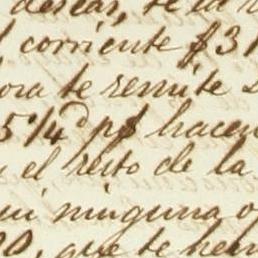 desear, te la
corriente $31
ora te remite
5 1/4 d p$ hacen
el resto de la
ui ninguna o
90, que te hem